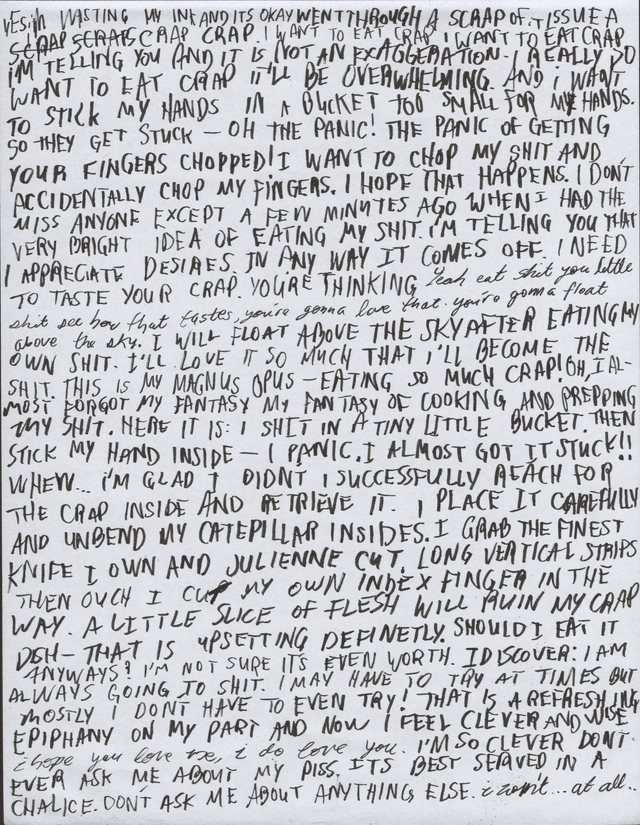 YES i'm WASTING MY INK AND ITS OKAY WENT THROUGH A SCRAP OF TISSUE A
SCRAP SCRAPS CRAP CRAP. I WANT TO EAT CRAP I WANT TO EAT CRAP
I'M TELLING YOU AND IT IS NOT AN EXAGGERATION - I REALLY DO
WANT TO EAT CRAP IT'LL BE OVERWHELMING. AND i WANT
TO STICK MY HANDS IN A BUCKET TOO SMALL FOR MY HANDS.
SO THEY GET STUCK — OH THE PANIC! THE PANIC OF GETTING
YOUR FINGERS CHOPPED! I WANT TO CHOP MY SHIT AND
ACCIDENTALLY CHOP MY FINGERS. I HOPE THAT HAPPENS. I DON'T
MISS ANYONE EXCEPT A FEW MINUTES AGO WHEN I HAD THE
VERY BRIGHT IDEA OF EATING MY SHIT. I'M TELLING YOU THAT
I APPRECIATE DESIRES. IN ANY WAY IT COMES OFF. I NEED
TO TASTE YOUR CRAP. YOU'RE THINKING Yeah eat shit you little
shit see how that tastes, you're gonna love that. you're gonna float
above the sky. I WILL FLOAT ABOVE THE SKY AFTER EATING MY
OWN SHIT. I'LL LOVE IT SO MUCH THAT I'LL BECOME THE
SHIT. THIS IS MY MAGNUS OPUS — EATING SO MUCH CRAP! OH, I AL-
MOST FORGOT MY FANTASY MY FANTASY OF COOKING AND PREPPING
MY SHIT. HERE IT IS: I SHIT IN A TINY LITTLE BUCKET. THEN
STICK MY HAND INSIDE — I PANIC. I ALMOST GOT IT STUCK!!
WHEW... I'M GLAD I DIDNT I SUCCESSFULLY REACH FOR
THE CRAP INSIDE AND RETRIEVE IT. I PLACE IT CAREFULLY
AND UNBEND MY CATEPILLAR INSIDES. I GRAB THE FINEST
KNIFE I OWN AND JULIENNE CUT. LONG VERTICAL STRIPS
THEN OUCH I CUT MY OWN INDEX FINGER IN THE
WAY. A LITTLE SLICE OF FLESH WILL RUIN MY CRAP
DISH — THAT IS UPSETTING DEFINETLY. SHOULD I EAT IT
ANYWAYS? I'M NOT SURE ITS EVEN WORTH. I DISCOVER: I AM
ALWAYS GOING TO SHIT. I MAY HAVE TO TRY AT TIMES BUT
MOSTLY I DONT HAVE TO EVEN TRY! THAT IS A REFRESHING
EPIPHANY ON MY PART AND NOW I FEEL CLEVER AND WISE
i hope you love me, i do love you. I'M SO CLEVER DON'T
EVER ASK ME ABOUT MY PISS. ITS BEST SERVED IN A
CHALICE. DON'T ASK ME ABOUT ANYTHING ELSE. i won't... at all..